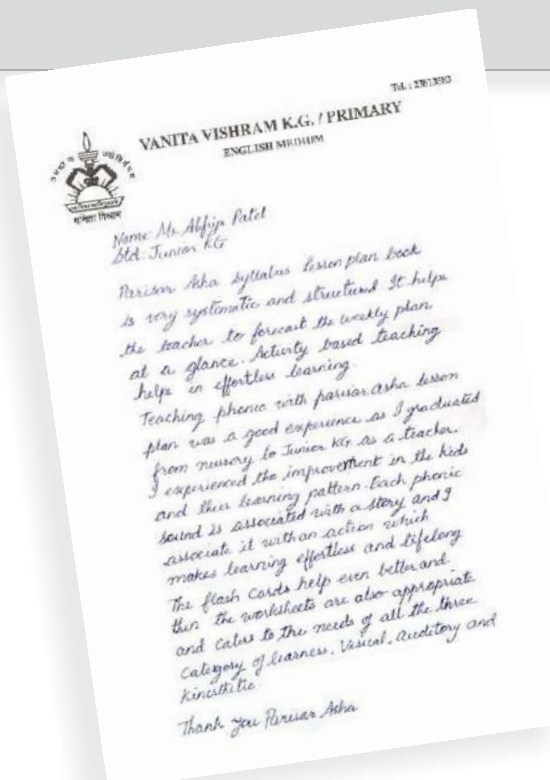 Tel. : 23813883
VANITA VISHRAM K.G. / PRIMARY
ENGLISH MEDIUM
वनिता विश्राम
Name: Ms. Patel
Std: Junior KG
Parisar Asha syllabus lesson plan book
is very systematic and structured. It helps
the teacher to forecast the weekly plan
at a glance. Activity based teaching
helps in effortless learning.
Teaching phonic with parisar asha lesson
plan was a good experience as I graduated
from nursery to Junior KG as a teacher.
I experienced the improvement in the kids
and their learning pattern. Each phonic
sound is associated with a story and I
associate it with an action which
makes learning effortless and lifelong
The flash Cards help even better and
the worksheets are also appropriate
and caters to the needs of all the three
Category of learners. Visual, auditory and
kinesthetic.
Thank you Parisar Asha